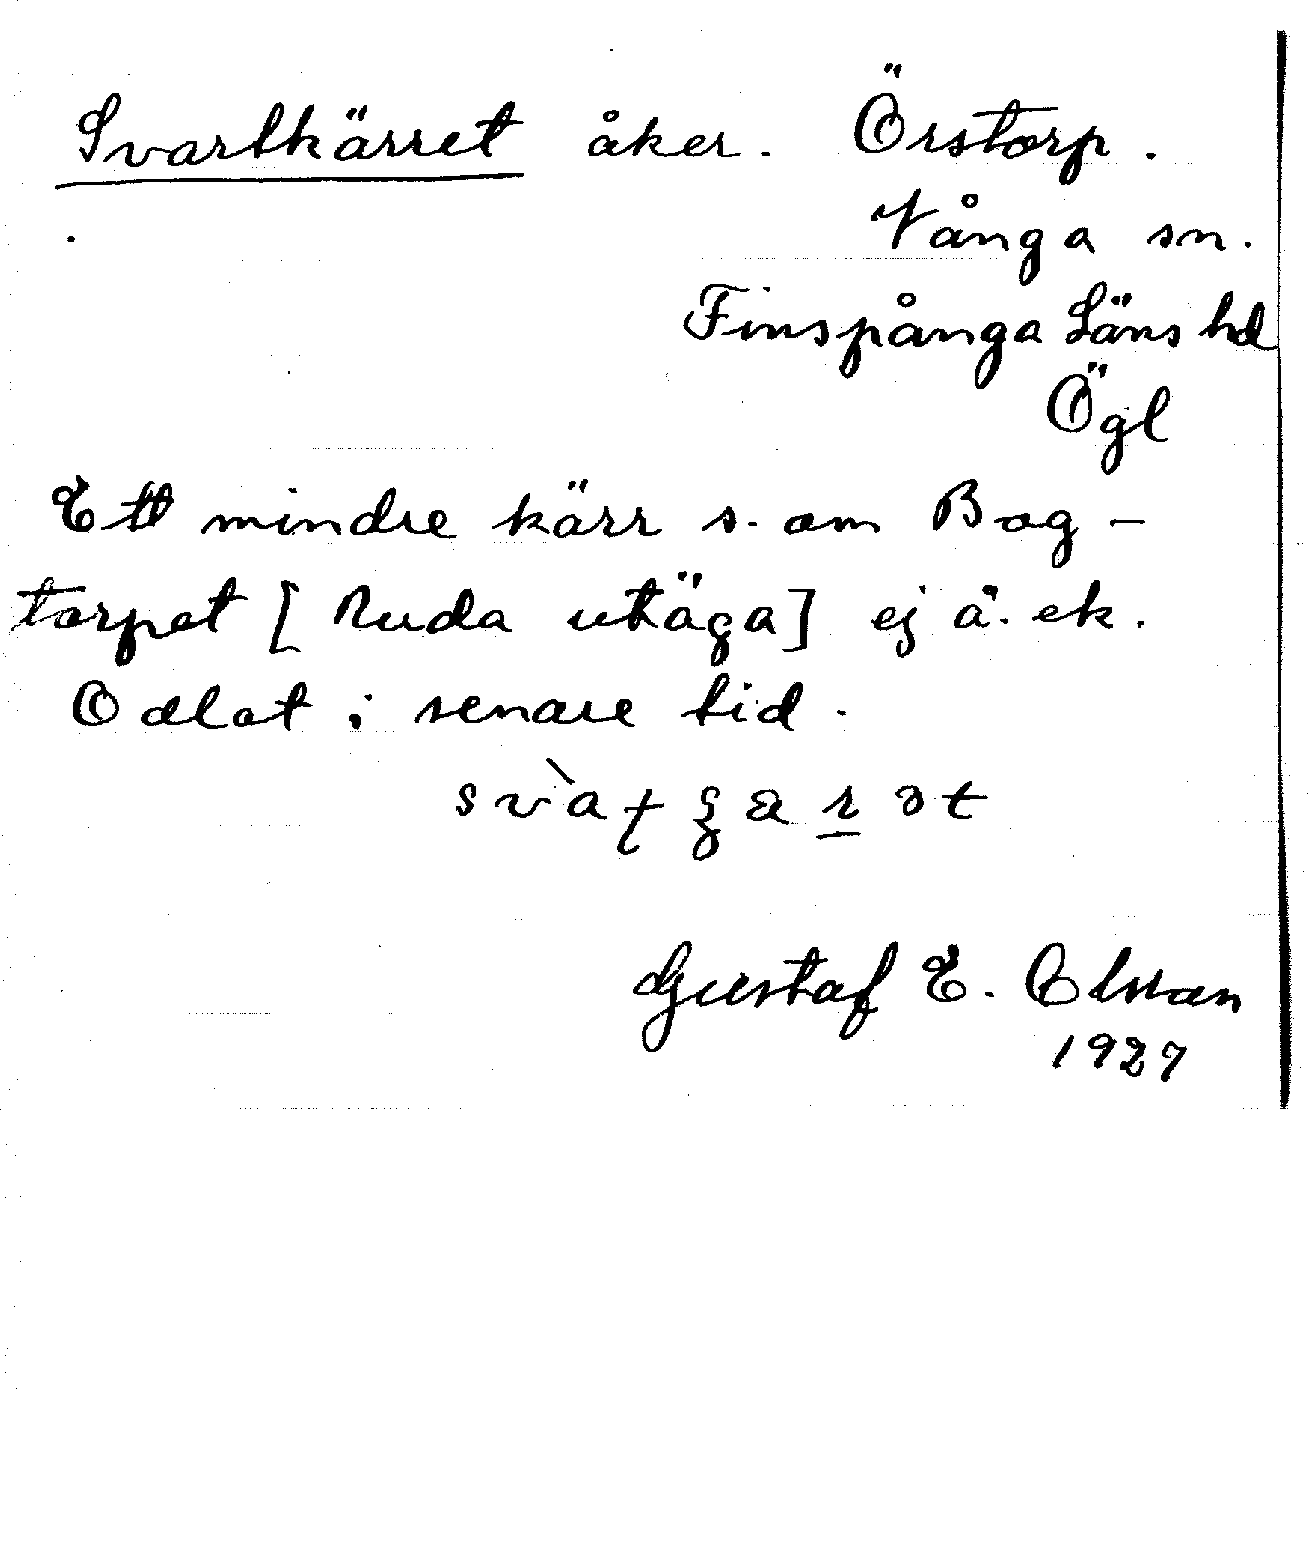 Svartkärret åker. Örstorp.
Vånga sn.
Finspånga Läns hd
Ögl
Ett mindre kärr s. om Bog-
torpet [Ruda utäga] ej ä. ek.
Odlat i senare tid.
Gustaf E. Olsson
1927